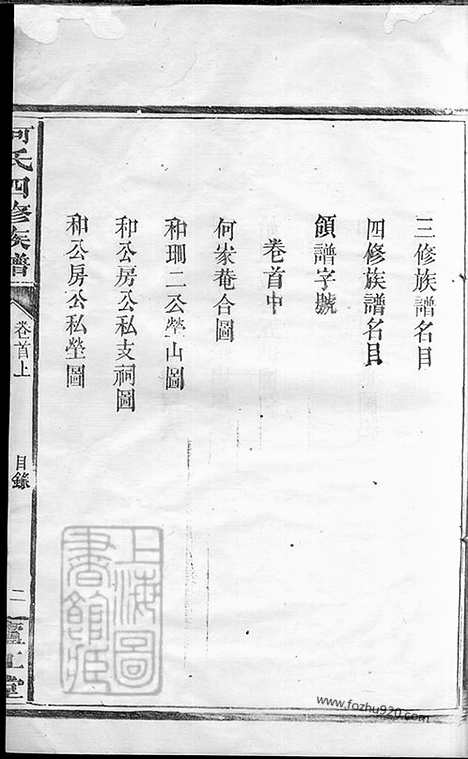 三修族譜名目
四修族譜名目
領譜字號
卷首中
何家菴合圖
和珊二公塋山圖
和公房公私支祠圖
和公房公私塋圖
何氏四修族譜
卷首上
目錄
二
廬江堂
上海圖書館藏
www.fozhu920.com